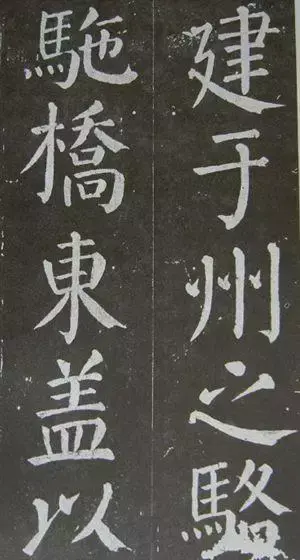 建于州之駱
駞橋東盖以